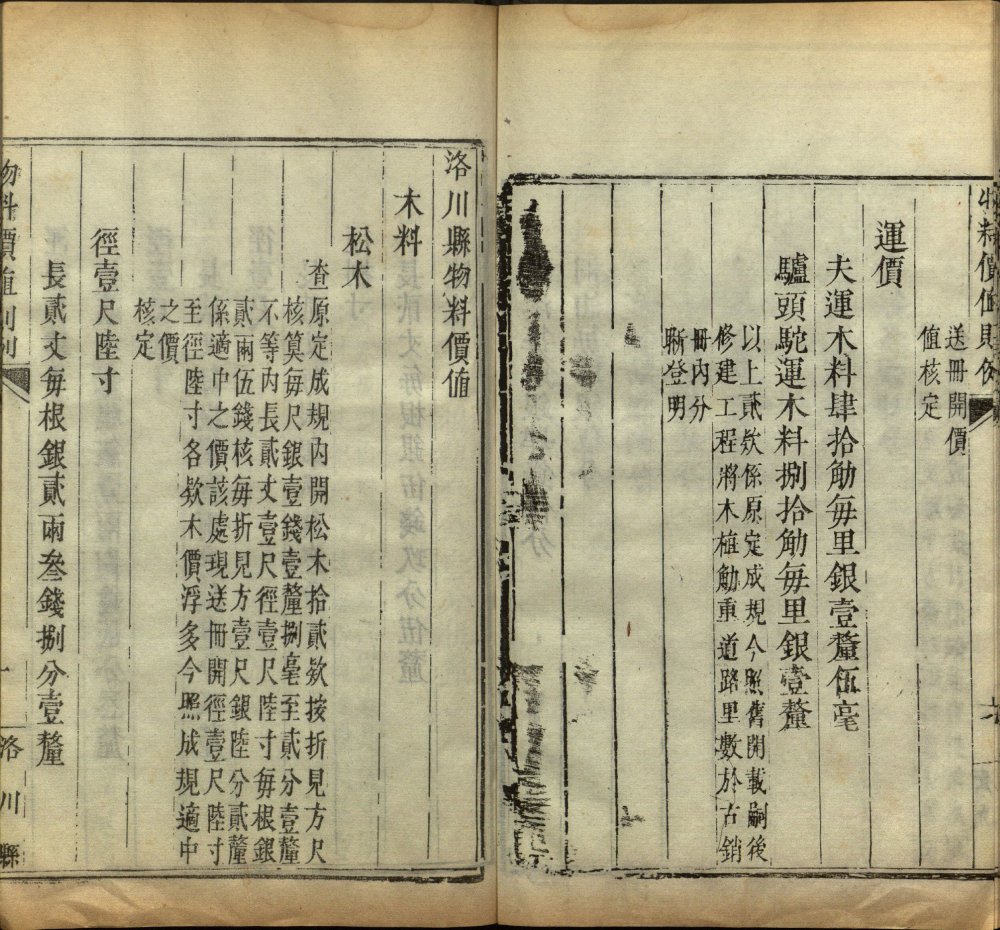 物料價值則例
送冊開價
值核定
運價
夫運木料肆拾觔每里銀壹釐伍毫
驢頭駝運木料捌拾觔每里銀壹釐
以上貳欵係原定成規今照舊開載嗣後
修建工程將木植觔重道路里數於古銷
冊內分
晰登明
洛川縣物料價值
木料
松木
查原定成規內開松木拾貳欵按折見方尺
核算每尺銀壹錢壹釐捌毫至貳分壹釐
不等內長貳丈壹尺徑壹尺陸寸每根銀
貳兩伍錢核每折見方壹尺銀陸分貳釐
係適中之價該處現送冊開徑壹尺陸寸
至徑陸寸各欵木價浮多今照成規適中
之價
核定
徑壹尺陸寸
長貳丈每根銀貳兩叁錢捌分壹釐
物料價值則例
一
洛川縣